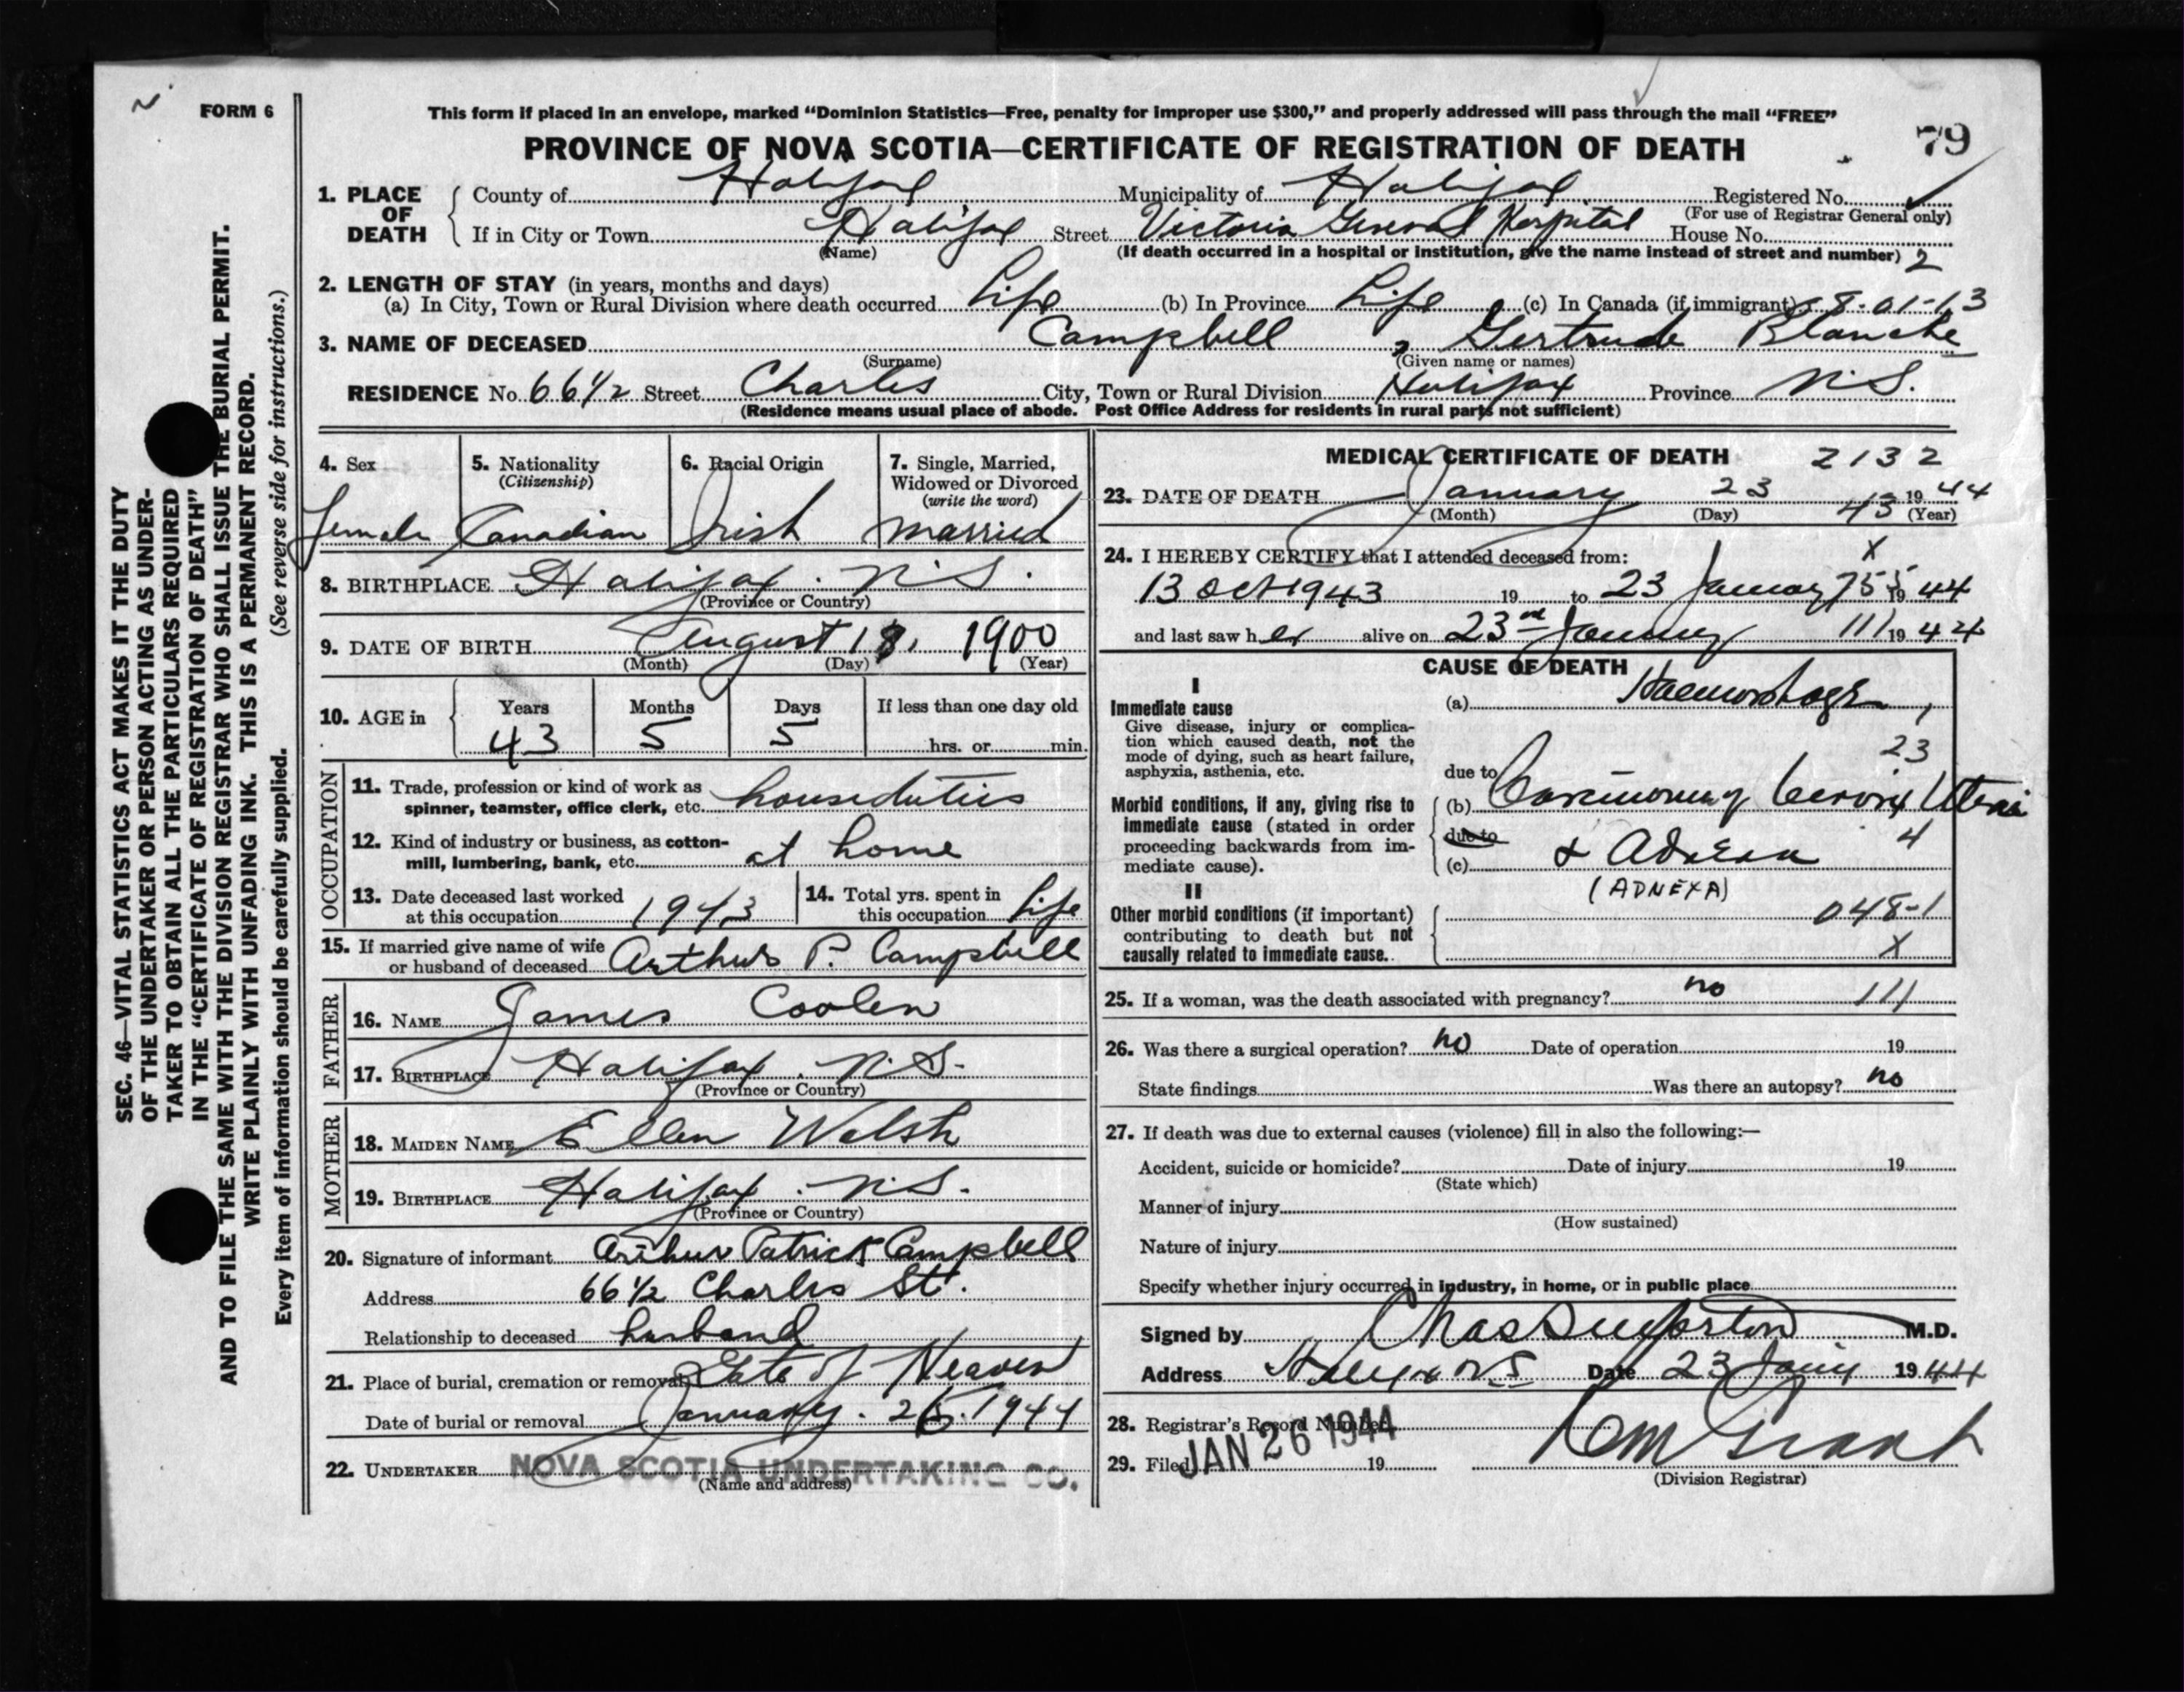 FORM 6
This form if placed in an envelope, marked "Dominion Statistics—Free, penalty for improper use $300," and properly addressed will pass through the mail "FREE"
PROVINCE OF NOVA SCOTIA—CERTIFICATE OF REGISTRATION OF DEATH
79
1. PLACE OF DEATH
County of Halifax Municipality of Halifax Registered No.
(For use of Registrar General only)
If in City or Town Halifax Street Victoria General Hospital House No.
(Name) (If death occurred in a hospital or institution, give the name instead of street and number) 2
2. LENGTH OF STAY (in years, months and days)
(a) In City, Town or Rural Division where death occurred Life (b) In Province Life (c) In Canada (if immigrant) 8-01-13
3. NAME OF DECEASED Campbell, Gertrude Blanche
(Surname) (Given name or names)
RESIDENCE No. 66 1/2 Street Charles City, Town or Rural Division Halifax Province N.S.
(Residence means usual place of abode. Post Office Address for residents in rural parts not sufficient)
4. Sex
female
5. Nationality
(Citizenship)
Canadian
6. Racial Origin
Irish
7. Single, Married,
Widowed or Divorced
(write the word)
married
8. BIRTHPLACE Halifax. N.S.
(Province or Country)
9. DATE OF BIRTH August 18, 1900
(Month) (Day) (Year)
10. AGE in Years Months Days If less than one day old
43 5 5 hrs. or min.
OCCUPATION
11. Trade, profession or kind of work as
spinner, teamster, office clerk, etc. houseduties
12. Kind of industry or business, as cotton-
mill, lumbering, bank, etc. at home
13. Date deceased last worked
at this occupation 1943
14. Total yrs. spent in
this occupation Life
15. If married give name of wife
or husband of deceased Arthur P. Campbell
FATHER
16. NAME James Coolen
17. BIRTHPLACE Halifax. N.S.
(Province or Country)
MOTHER
18. MAIDEN NAME Ellen Walsh
19. BIRTHPLACE Halifax. N.S.
(Province or Country)
20. Signature of informant Arthur Patrick Campbell
Address 66 1/2 Charles St.
Relationship to deceased husband
21. Place of burial, cremation or removal Gate of Heaven
Date of burial or removal January. 26. 1944
22. UNDERTAKER NOVA SCOTIA UNDERTAKING CO.
(Name and address)
MEDICAL CERTIFICATE OF DEATH 2132
23. DATE OF DEATH January 23 1944
(Month) (Day) 43 (Year)
24. I HEREBY CERTIFY that I attended deceased from: X
13 Oct 1943 19 to 23 January 755 19 44
and last saw her alive on 23rd January 111 19 44
CAUSE OF DEATH
I
Immediate cause
Give disease, injury or complica-
tion which caused death, not the
mode of dying, such as heart failure,
asphyxia, asthenia, etc.
(a) Haemorrhage
23
due to
Morbid conditions, if any, giving rise to
immediate cause (stated in order
proceeding backwards from im-
mediate cause).
(b) Carcinoma of Cervix Uteri
due to 4
(c) & Adnexa
(ADNEXA)
II
Other morbid conditions (if important)
contributing to death but not
causally related to immediate cause.
048-1
X
25. If a woman, was the death associated with pregnancy? no 111
26. Was there a surgical operation? no Date of operation 19
State findings Was there an autopsy? no
27. If death was due to external causes (violence) fill in also the following:—
Accident, suicide or homicide? Date of injury 19
(State which)
Manner of injury
(How sustained)
Nature of injury
Specify whether injury occurred in industry, in home, or in public place
Signed by M.D.
Address Halifax N.S Date 23 Jany 1944
28. Registrar's Record Number
29. Filed JAN 26 1944 19
Grant
(Division Registrar)
SEC. 46—VITAL STATISTICS ACT MAKES IT THE DUTY
OF THE UNDERTAKER OR PERSON ACTING AS UNDER-
TAKER TO OBTAIN ALL THE PARTICULARS REQUIRED
IN THE "CERTIFICATE OF REGISTRATION OF DEATH"
AND TO FILE THE SAME WITH THE DIVISION REGISTRAR WHO SHALL ISSUE THE BURIAL PERMIT.
WRITE PLAINLY WITH UNFADING INK. THIS IS A PERMANENT RECORD.
Every item of information should be carefully supplied. (See reverse side for instructions.)